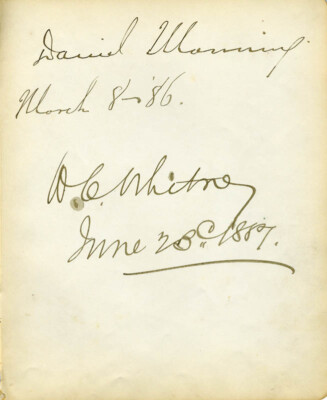 Daniel Manning.
March 8–'86.
W. C. Whitney
June 23d. 1887.